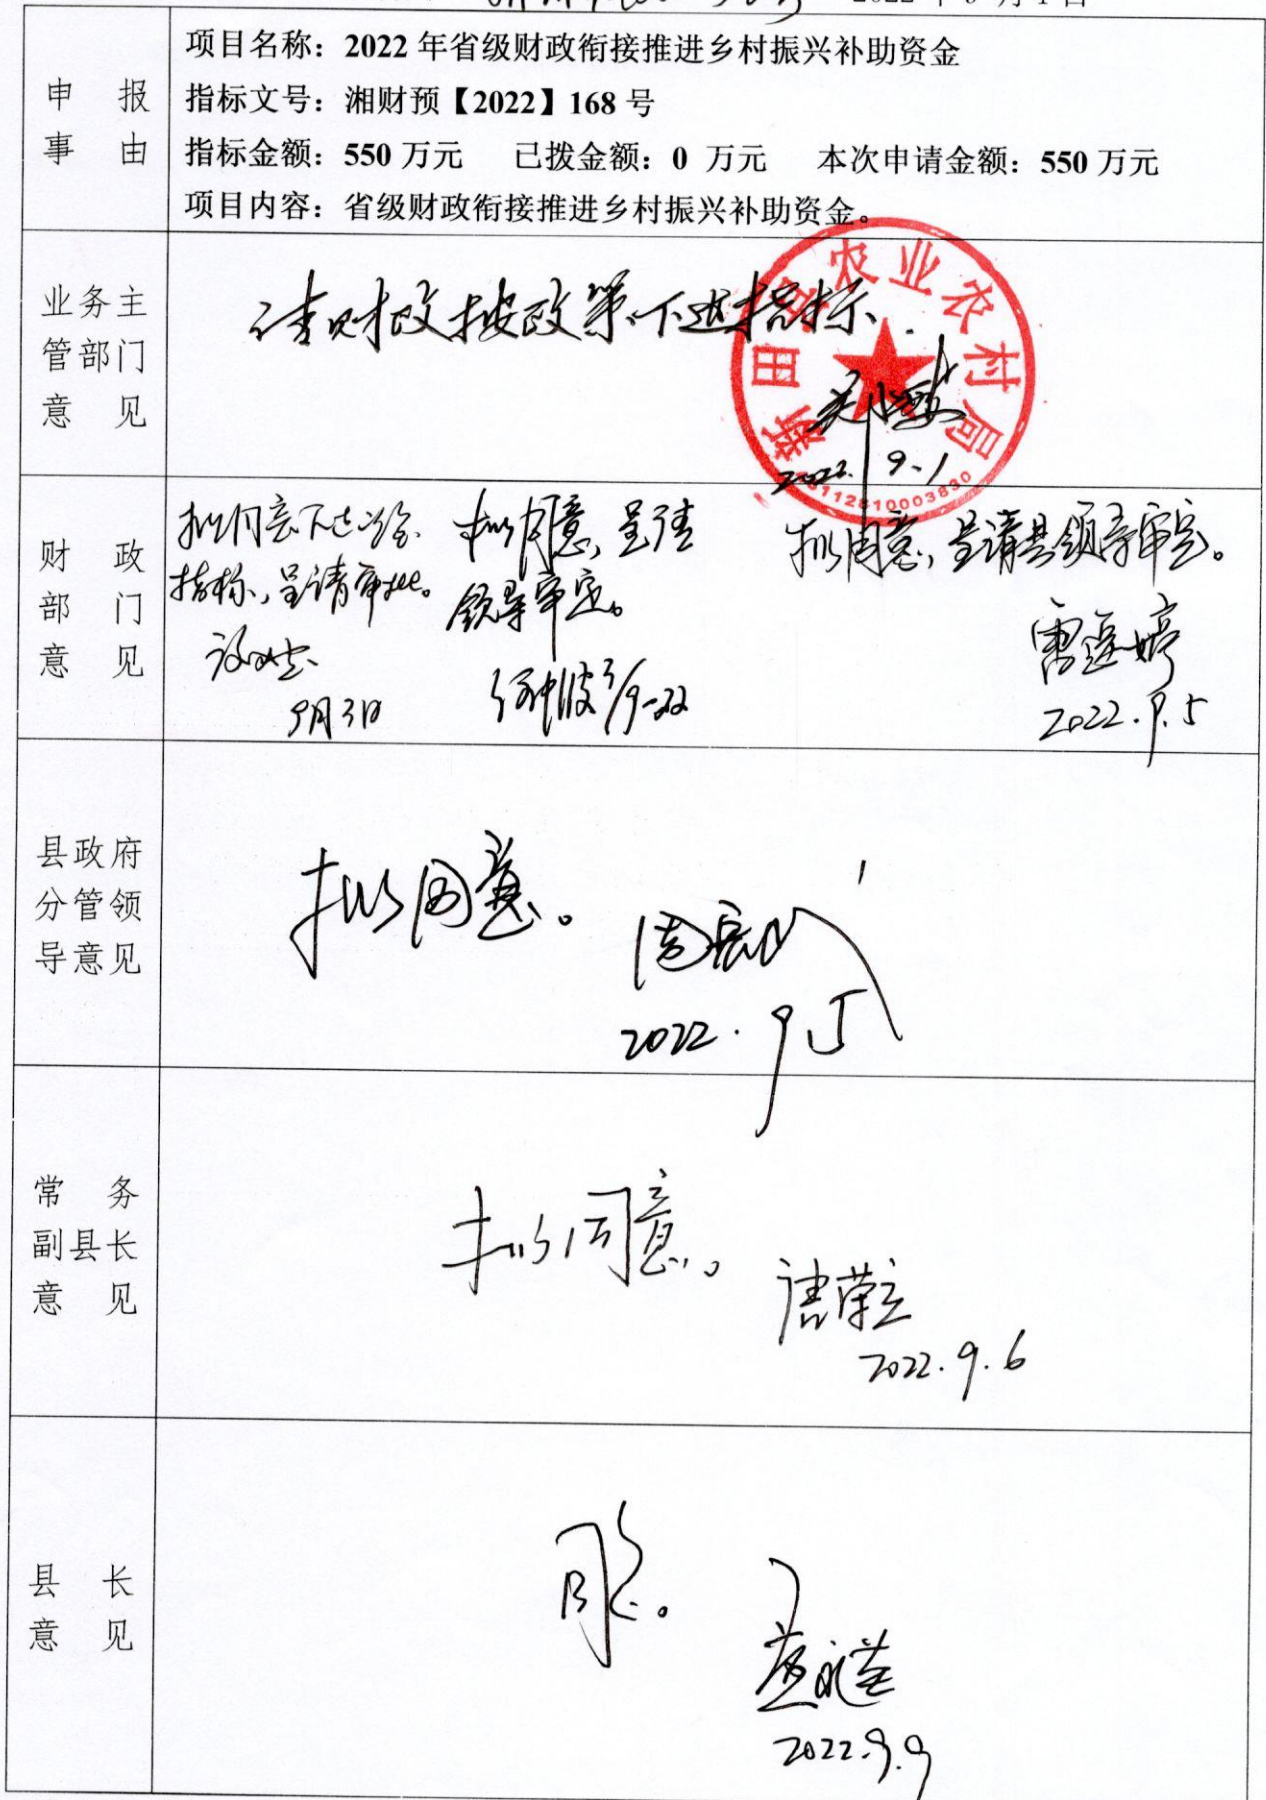 2022年9月1日
申报事由
项目名称：2022年省级财政衔接推进乡村振兴补助资金
指标文号：湘财预【2022】168号
指标金额：550万元 已拨金额：0 万元 本次申请金额：550万元
项目内容：省级财政衔接推进乡村振兴补助资金。
业务主管部门意见
请财政按政策下达指标.
新田县农业农村局
2022.9.1
财政部门意见
拟同意下达
指标，呈请审批。
9月3日
拟同意，呈请
领导审定。
拟同意，呈请县领导审定。
2022.9.5
县政府分管领导意见
拟同意。
2022.9.5
常务副县长意见
拟同意。
唐荣立
2022.9.6
县长意见
同意。
2022.9.9